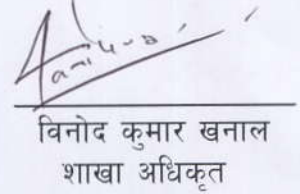 विनोद कुमार खनाल
शाखा अधिकृत